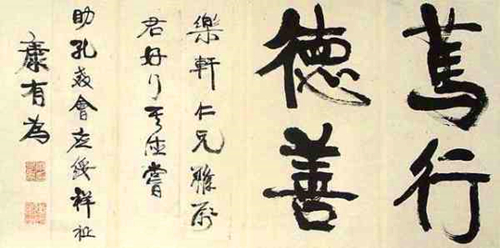 篤行
德善
樂軒仁兄雅屬
君好行其德嘗
助孔教會綏祥祉
康有為